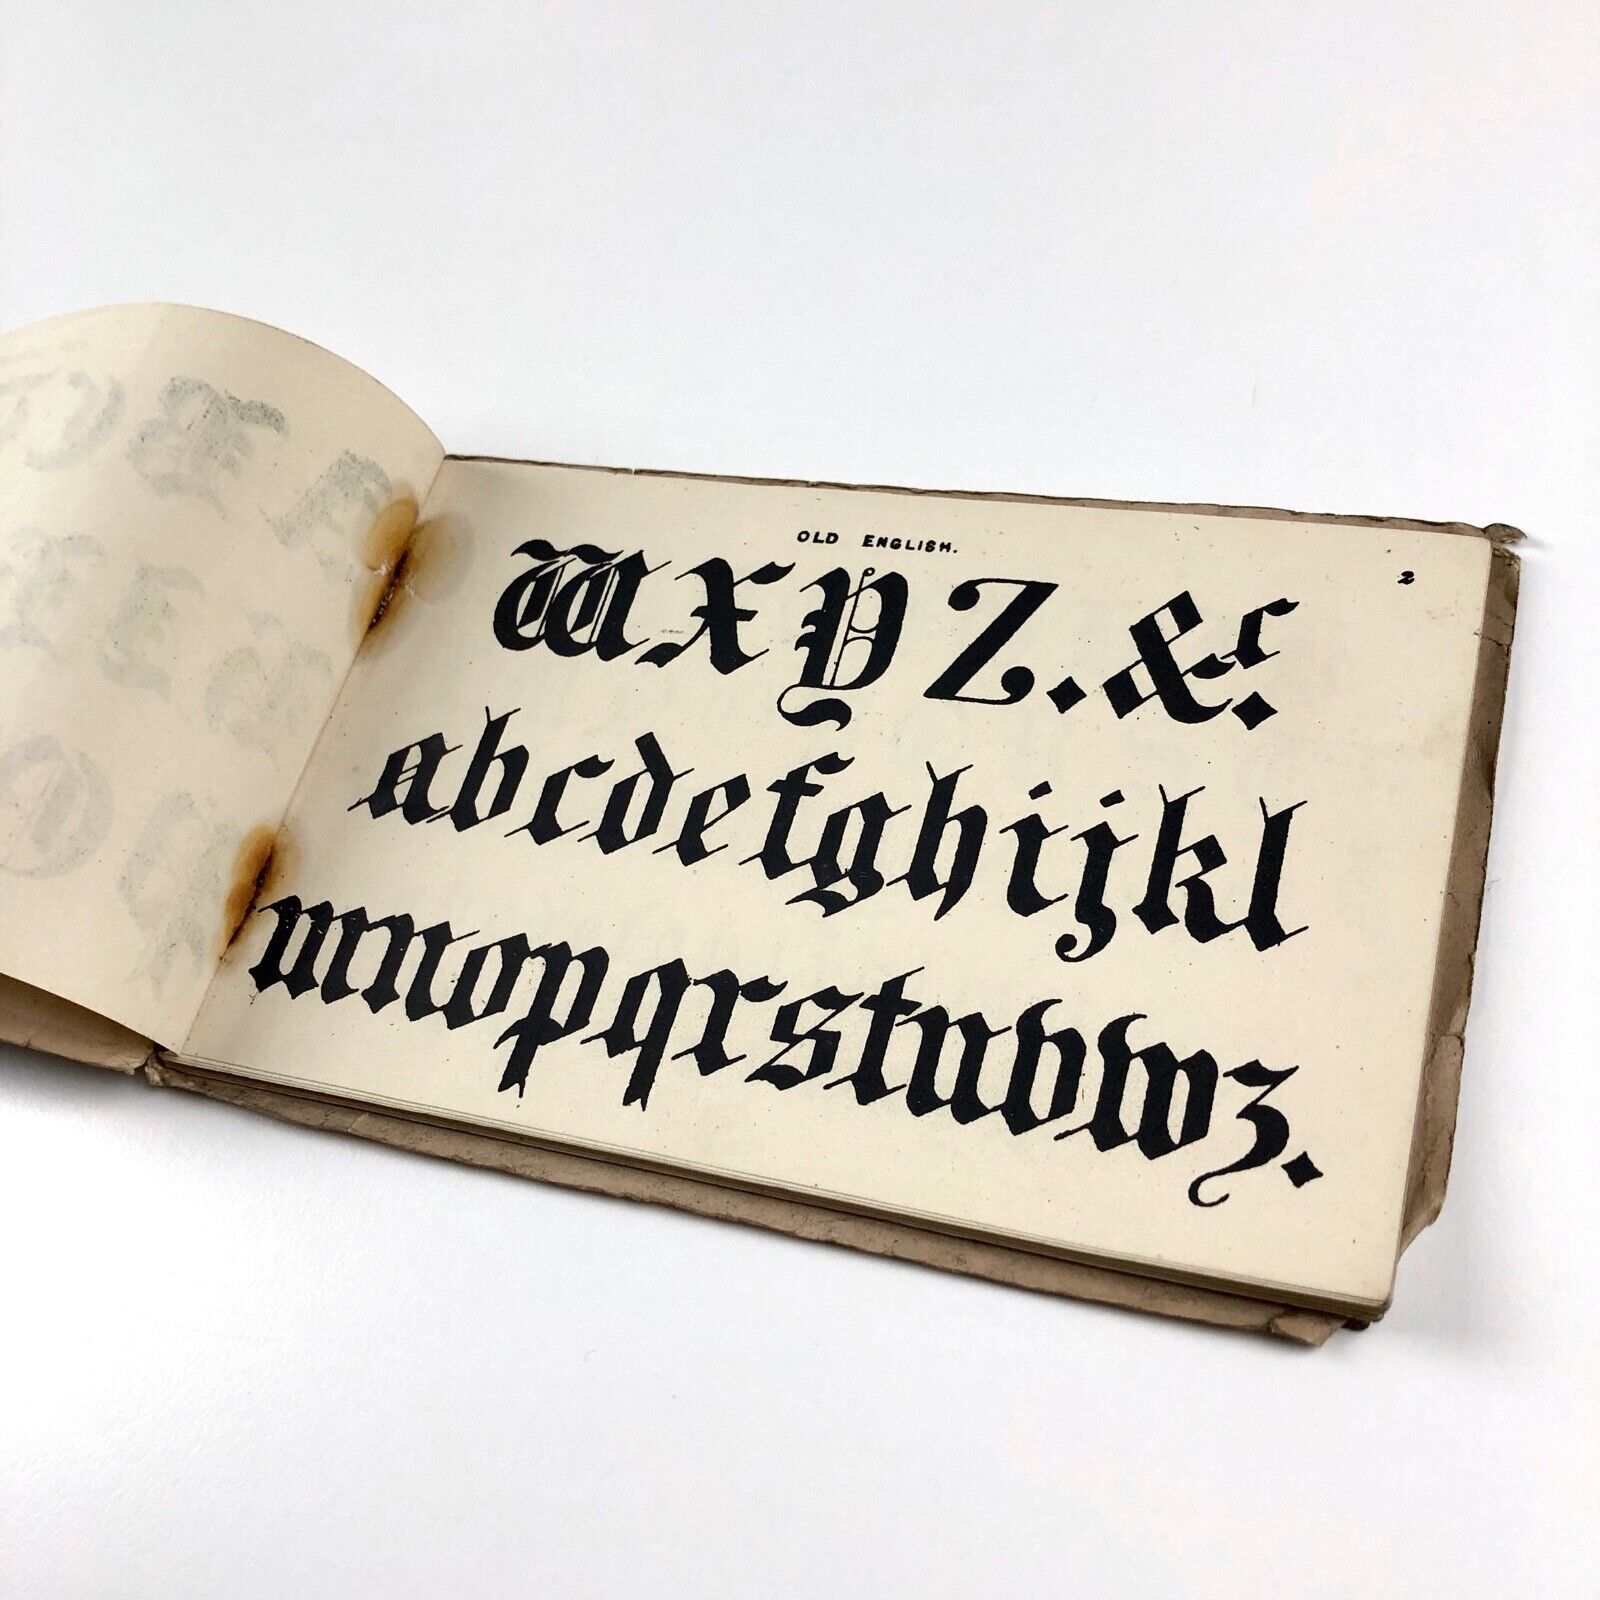 OLD ENGLISH.
2
W X Y Z . &c.
a b c d e f g h i j k l
m n o p q r s t u v w z .